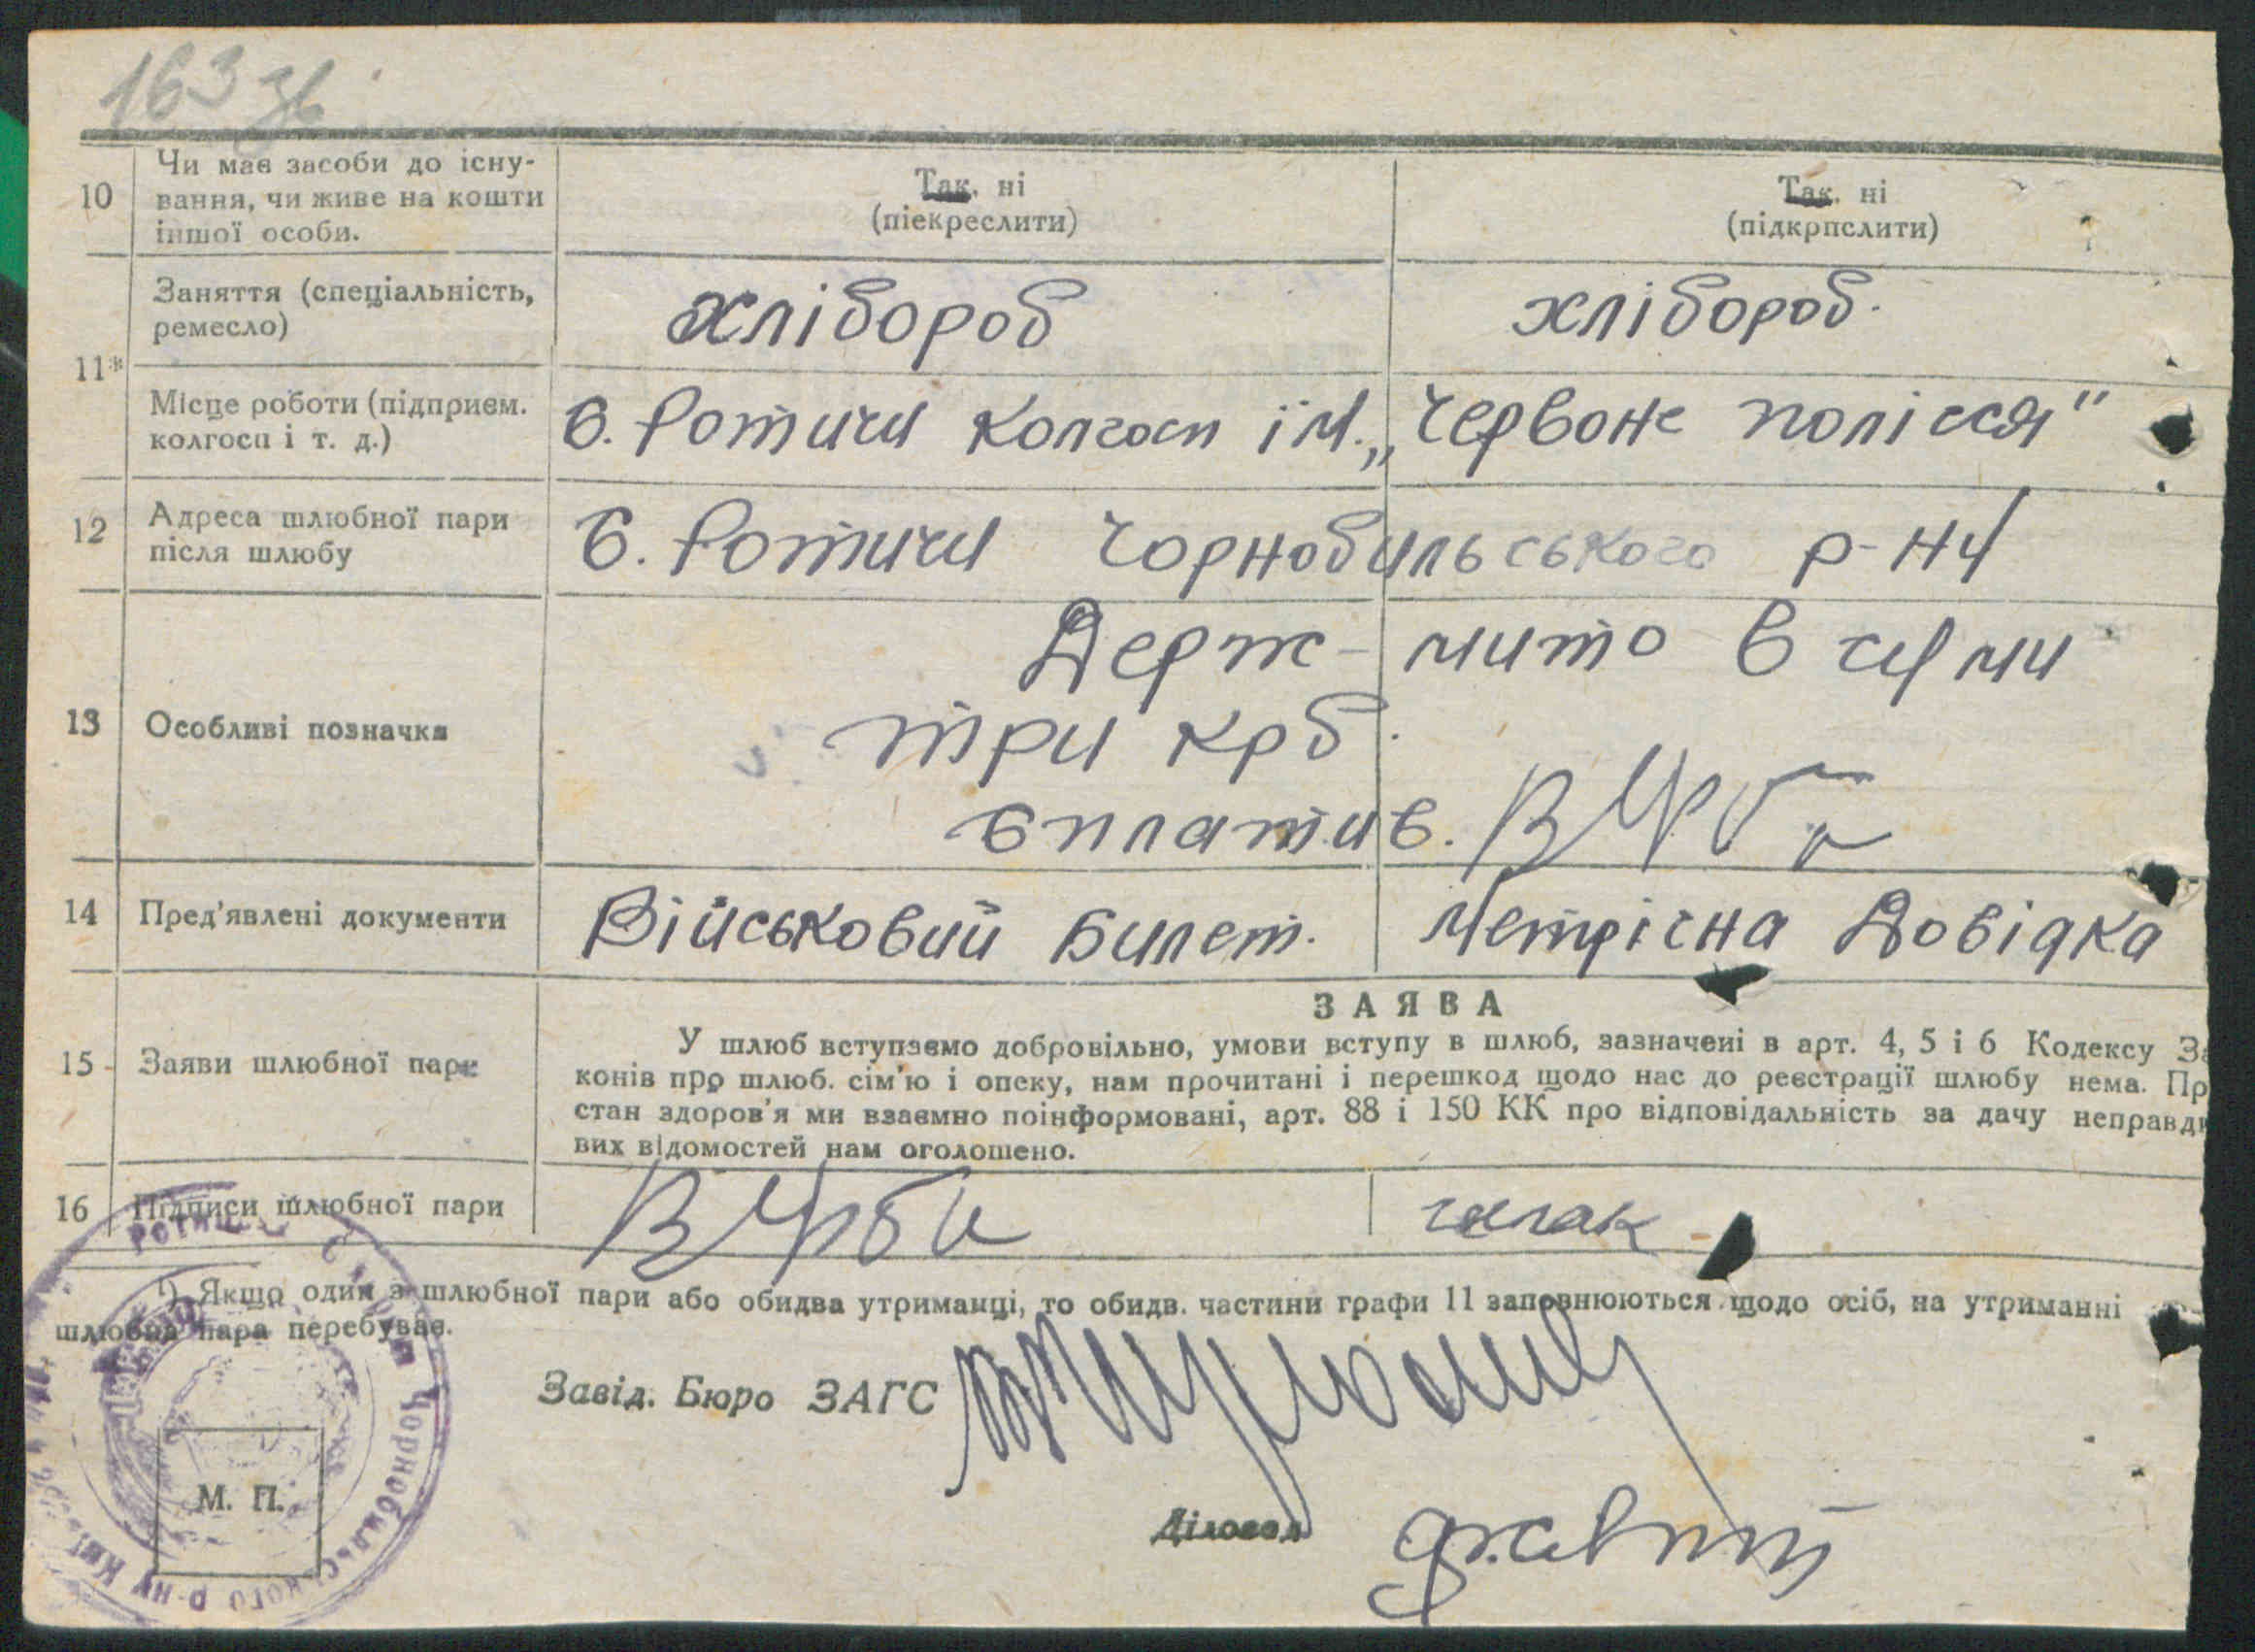 163 зв
10 Чи має засоби до існу-
вання, чи живе на кошти
іншої особи.
Так. ні
(піекреслити)
Так. ні
(підкрпслити)
11*
Заняття (спеціальність,
ремесло)
хлібороб
хлібороб.
Місце роботи (підприєм.
колгосп і т. д.)
в. Ротичи Колгосп ім. „Червоне полісся"
12 Адреса шлюбної пари
після шлюбу
в. Ротичи Чорнобильського р-ну
13 Особливі позначки
Держ-мито в сумі
три крб.
вплатив.
14 Пред'явлені документи
Військовий Билет.
Метрісна Довідка
15 Заяви шлюбної пари
ЗАЯВА
У шлюб вступаємо добровільно, умови вступу в шлюб, зазначені в арт. 4, 5 і 6 Кодексу За
конів про шлюб. сім'ю і опеку, нам прочитані і перешкод щодо нас до реєстрації шлюбу нема. Пр
стан здоров'я ми взаємно поінформовані, арт. 88 і 150 КК про відповідальність за дачу неправди
вих відомостей нам оголошено.
16 Підписи шлюбної пари
¹) Якщо один з шлюбної пари або обидва утриманці, то обидв. частини графи 11 заповнюються щодо осіб, на утриманні
шлюбна пара перебуває.
Завід. Бюро ЗАГС
М. П.
Діловод
Чорнобильського р-ну